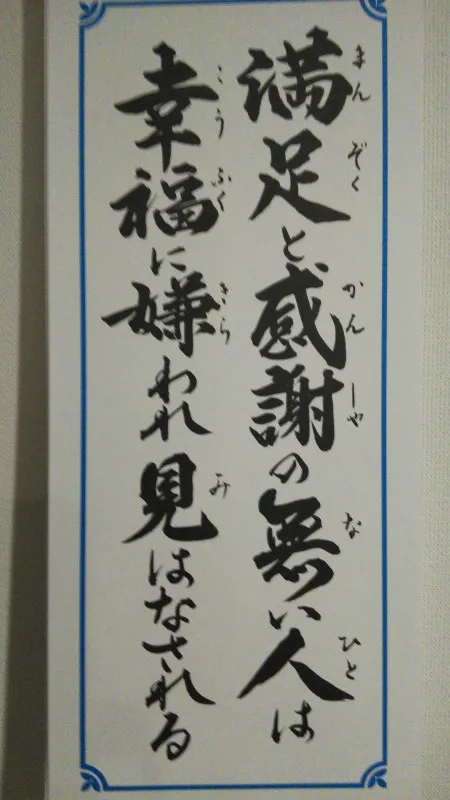 満足と感謝の無い人は
まんぞく かんしゃ な ひと
幸福に嫌われ見はなされる
こうふく きら み